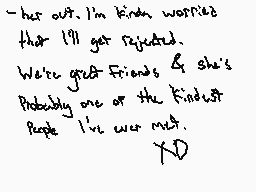 - her out. I'm kinda worried
that I'll get rejected.
We're great friends & she's
Probably one of the kindest
People I've ever met.
XD